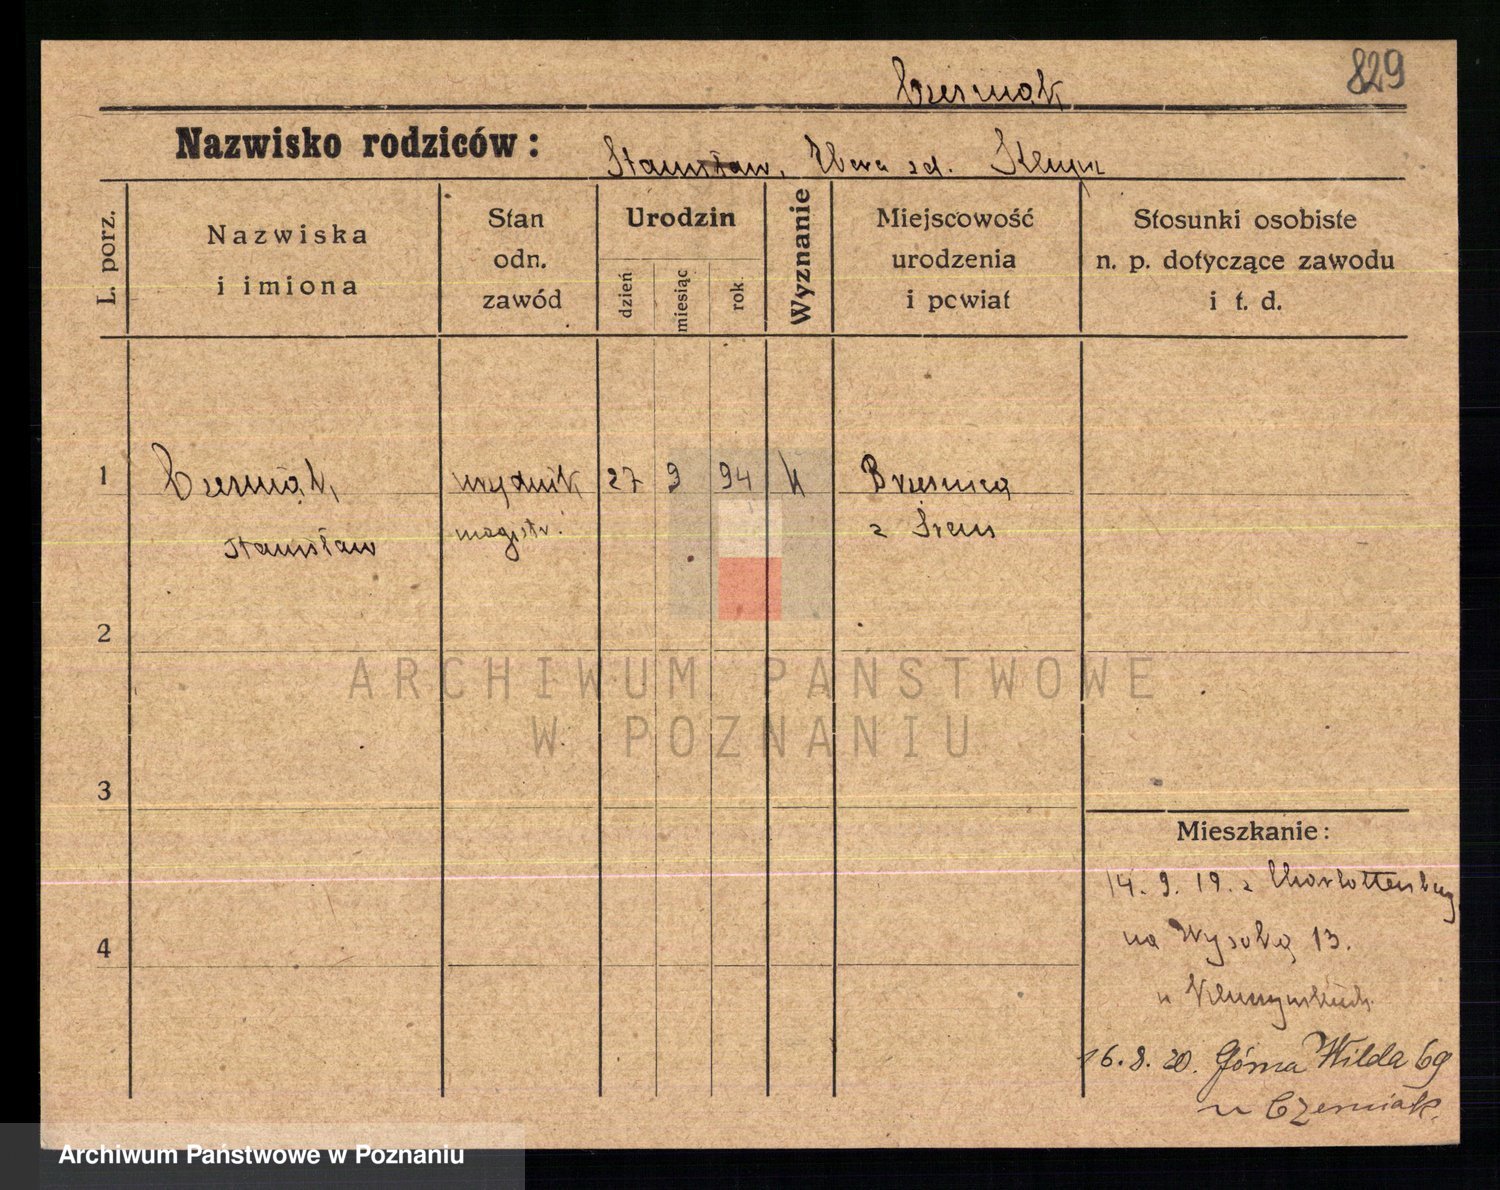 829
Czerniak
Nazwisko rodziców:
Stanisław, Ewa zd.
L. porz.
Nazwiska
i imiona
Stan
odn.
zawód
Urodzin
dzień
miesiąc
rok.
Wyznanie
Miejscowość
urodzenia
i pcwiat
Stosunki osobiste
n. p. dotyczące zawodu
i t. d.
1
Czerniak,
Stanisław
urzędnik
magistr.
27 9 94
k
Brzeźnica
z Śrem
2
ARCHIWUM PAŃSTWOWE
W POZNANIU
3
Mieszkanie:
14. 9. 19. z Charlottenburg
na Wysoką 13.
u
4
16. 8. 20. Górna Wilda 69
u Czerniak.
Archiwum Państwowe w Poznaniu